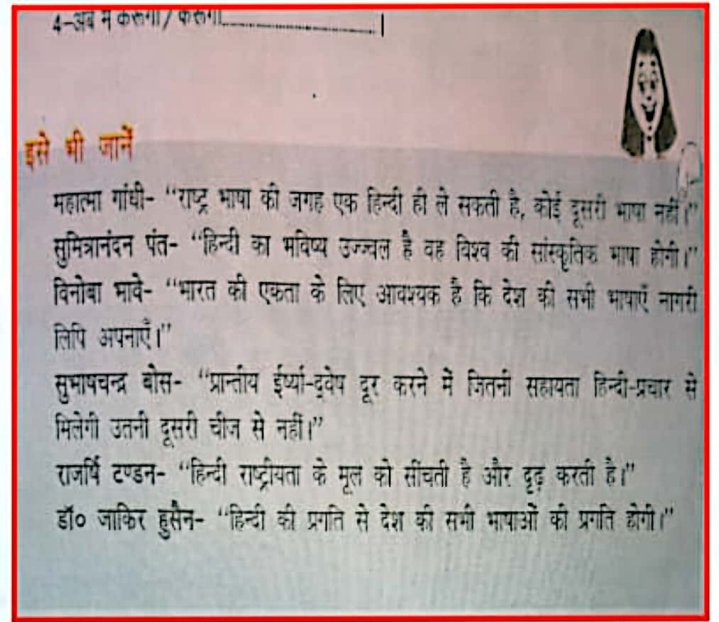 4-अब मैं करूंगा / करूंगी..............................|
इसे भी जानें
महात्मा गांधी- ‘‘राष्ट्र भाषा की जगह एक हिन्दी ही ले सकती है, कोई दूसरी भाषा नहीं।’’
सुमित्रानंदन पंत- ‘‘हिन्दी का भविष्य उज्ज्वल है वह विश्व की सांस्कृतिक भाषा होगी।’’
विनोबा भावे- ‘‘भारत की एकता के लिए आवश्यक है कि देश की सभी भाषाएँ नागरी
लिपि अपनाएँ।’’
सुभाषचन्द्र बोस- ‘‘प्रान्तीय ईर्ष्या-द्वेष दूर करने में जितनी सहायता हिन्दी-प्रचार से
मिलेगी उतनी दूसरी चीज से नहीं।’’
राजर्षि टण्डन- ‘‘हिन्दी राष्ट्रीयता के मूल को सींचती है और दृढ़ करती है।’’
डॉ० जाकिर हुसैन- ‘‘हिन्दी की प्रगति से देश की सभी भाषाओं की प्रगति होगी।’’